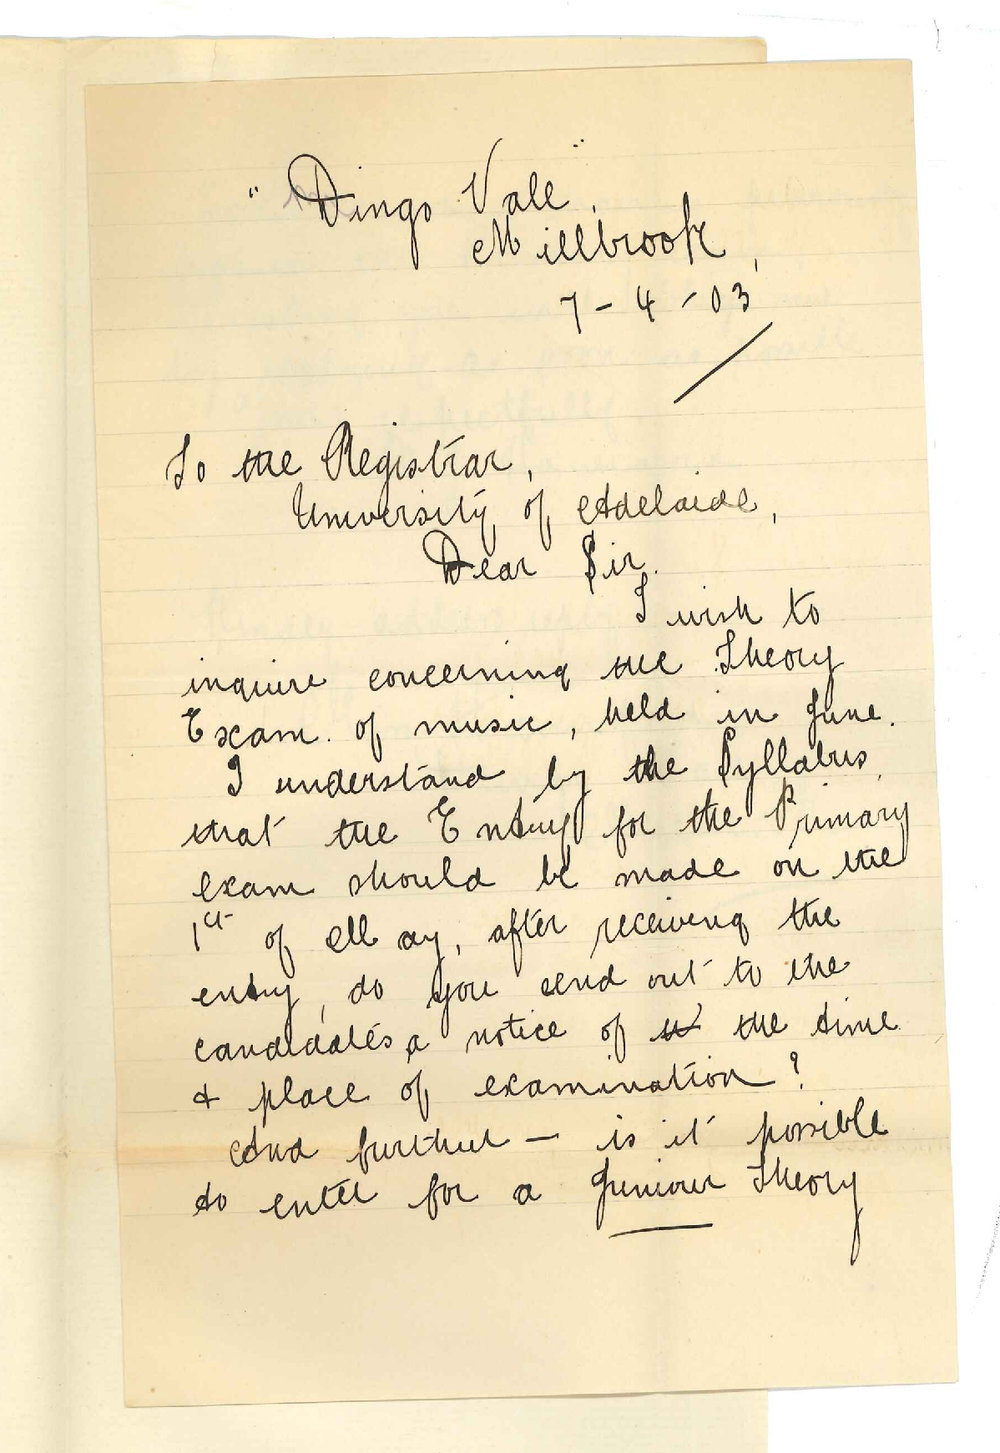 "Dingo Vale",
Millbrook,
7-4-03
To the Registrar,
University of Adelaide,
Dear Sir.
I wish to
inquire concerning the Theory
Exam. of music, held in June.
I understand by the Syllabus,
that the Entry for the Primary
exam should be made on the
1st of May, after receiving the
entry, do you send out to the
candidates a notice of the time
& place of examination?
And further — is it possible
to enter for a Juniour Theory